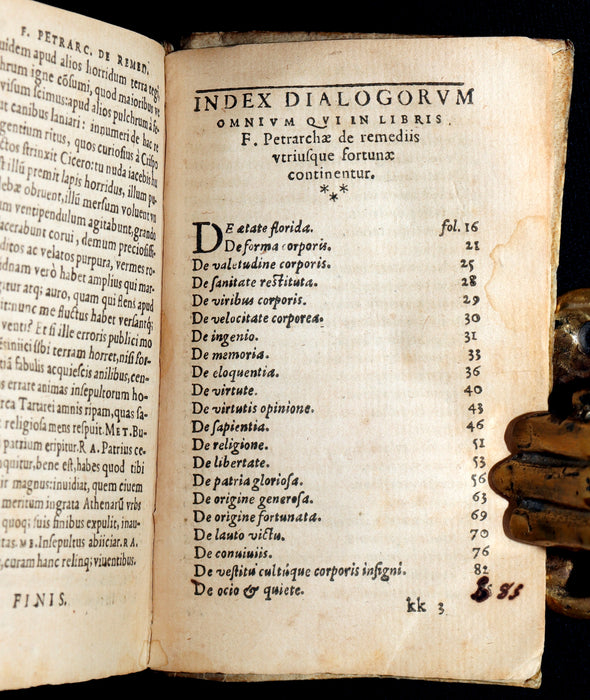 F. PETRARC. DE REMED.
uidem apud alios horridum terra tegi
chrum igne cōsumi, quod maioribus ve
visum scimus: apud alios pulchrum à fe-
t canibus laniari: innumeri de hac re
gentium ritus, quos curiosius à Crispo
ctos strinxit Cicero: tu nuda iacebis hu
illū premit lapis horridus, illum pu-
ebæ obruent, illū mersum voluent vn
um ventipendulum agitabunt, grando
lacerabunt corui, demum preciosissi-
ditos ac velatos purpura, vermes ro-
idnam verò habet amplius qui mar-
itur atq; auro, quam qui stens apud
it nunc me fluctus habet versantq;
venti? Et si ille erroris publici mo
insepultum
tiā fabulis acquiescis anilibus, cen-
s errate animas insepultorum ho-
rea Tartarei amnis ripam, quas sa-
religiosa mens respuit. MET. Bu-
patrium eripitur. RA. Patrius ce-
quitur, bene est, habes quod tibi
ir magnus: inuidiat, quem ciuem
mentum ingrata Athenarū vrbs
quoq; suis finibus expulit, inau-
tas. MB. Insepultus abiiciar. RA.
, curam hanc relinq; viuentibus.
FINIS.
INDEX DIALOGORVM
OMNIVM QVI IN LIBRIS
F. Petrarchæ de remediis
vtriusque fortunæ
continentur.
***
DE ætate florida. fol. 16
De forma corporis. 21
De valetudine corporis. 25
De sanitate restituta. 28
De viribus corporis. 29
De velocitate corporea. 30
De ingenio. 31
De memoria. 33
De eloquentia. 36
De virtute. 40
De virtutis opinione. 43
De sapientia. 46
De religione. 51
De libertate. 53
De patria gloriosa. 56
De origine generosa. 63
De origine fortunata. 69
De lauto victu. 70
De conuiuiis. 76
De vestitu cultúque corporis insigni. 82
De ocio & quiete. 85
kk 3